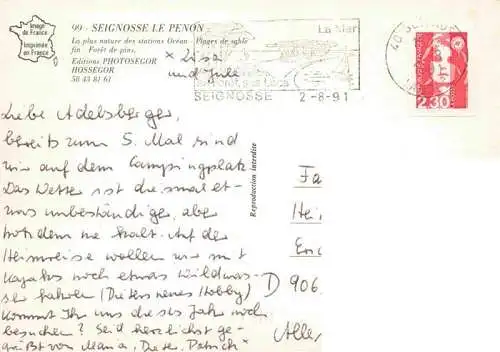 Image
de France
Imprimée
en France
99 - SEIGNOSSE LE PENON
La plus nature des stations Océan - Plages de sable
fin - Forêt de pins.
Editions PHOTOSEGOR
HOSSEGOR
58 43 81 61
x Lisa
und Jule
La Mer
SEIGNOSSE 2-8-91
40
2,30
Reproduction interdite
Liebe Adelsberger,
bereits zum 5. Mal sind
wir auf dem Campingplatz.
Das Wetter ist diesmal et-
was unbeständiger, aber
trotzdem nie kalt. Auf der
Heimreise wollen wir mit
Kajaks noch etwas Wildwas-
ser fahren (Dieters neues Hobby)
Kommt Ihr uns dieses Jahr noch
besuchen? Seid herzlichst ge-
grüßt von Maria, Dieter, Patrick
Fa
Hei
Eric
D 906
Alle